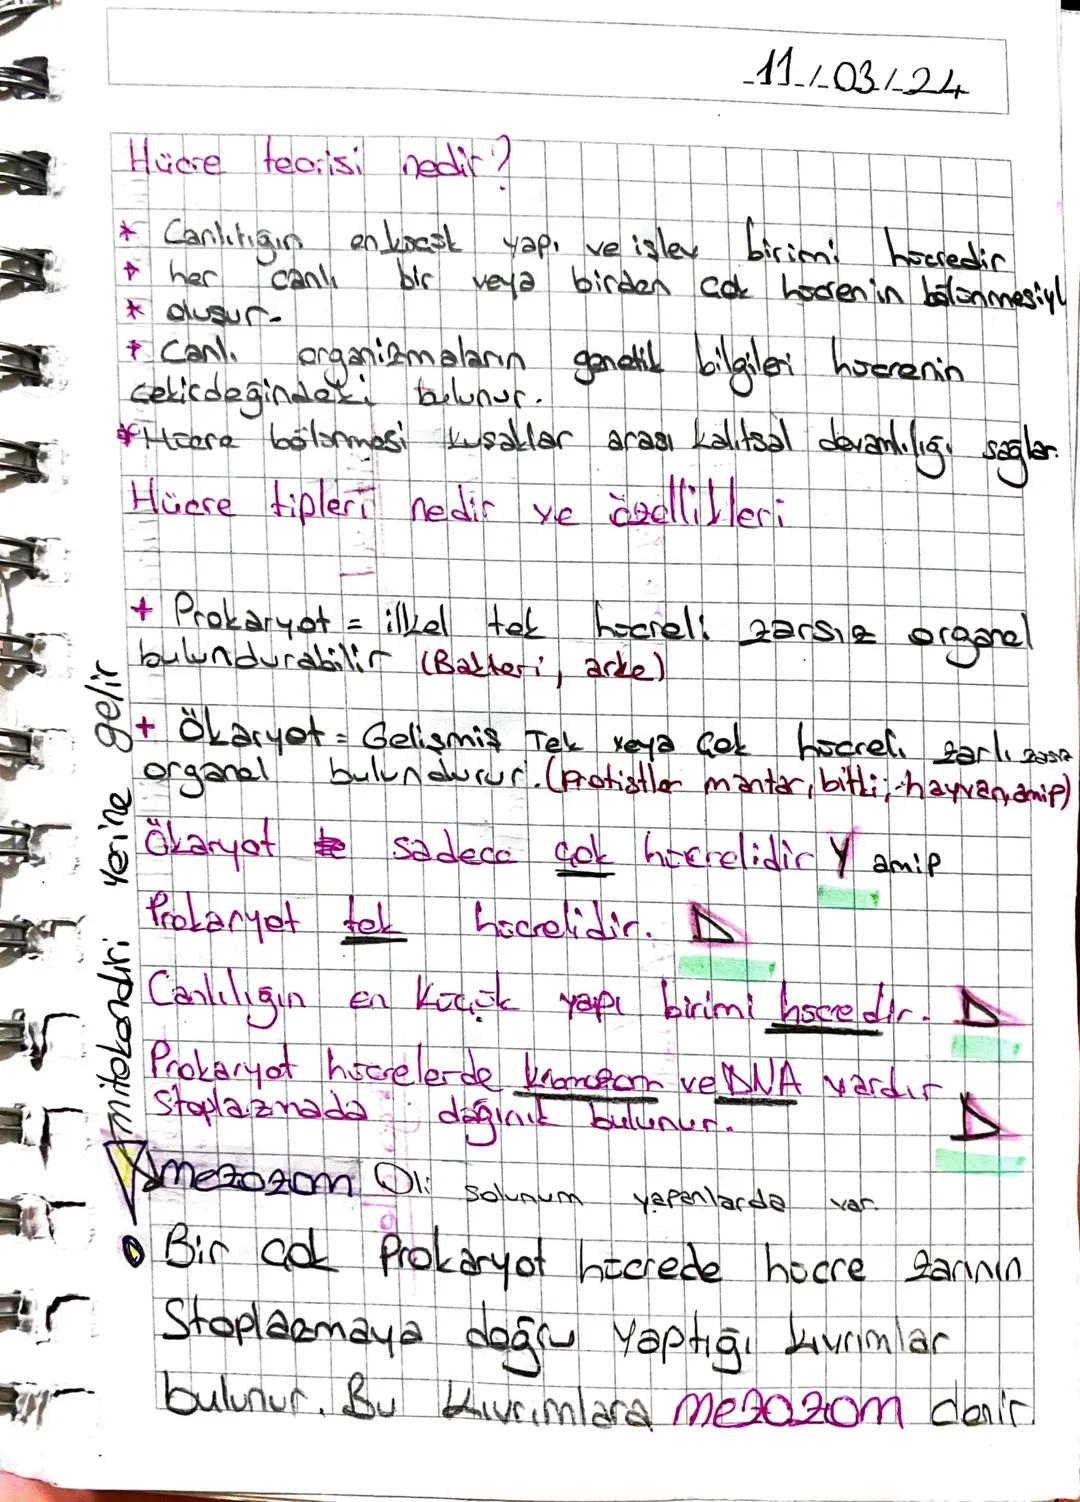 11/03/24
Hücre teorisi nedir?
* Canlılığın en küçük yapı ve işlev birimi hücredir
* her canlı bir veya birden çok hücrenin bölünmesiyl
* oluşur.
* Canlı organizmaların genetik bilgileri hücrenin
çekicdeğindeki bulunur.
* Hücre bölünmesi kuşaklar arası kalıtsal devamlılığı sağlar.
Hücre tipleri nedir ve özellikleri
+ Prokaryot = ilkel tek hücreli zarsız organel
bulundurabilir (Bakteri, arke)
+ Ökaryot = Gelişmiş Tek veya çok hücreli zarlı zarsız
organel bulundurur. (Protistler mantar, bitki, hayvan, amip)
Ökaryot sadece çok hücrelidir Y amip
Prokaryot tek hücrelidir. D
Canlılığın en küçük yapı birimi hücredir. D
Prokaryot hücrelerde kromozom ve DNA vardır
Stoplazmada dağınık bulunur. D
mezozom O₂li solunum yapanlarda var.
Bir çok Prokaryot hücrede hücre zarının
Stoplazmaya doğru yaptığı kıvrımlar
bulunur. Bu kıvrımlara mezozom denir
mitokondiri yerine gelir